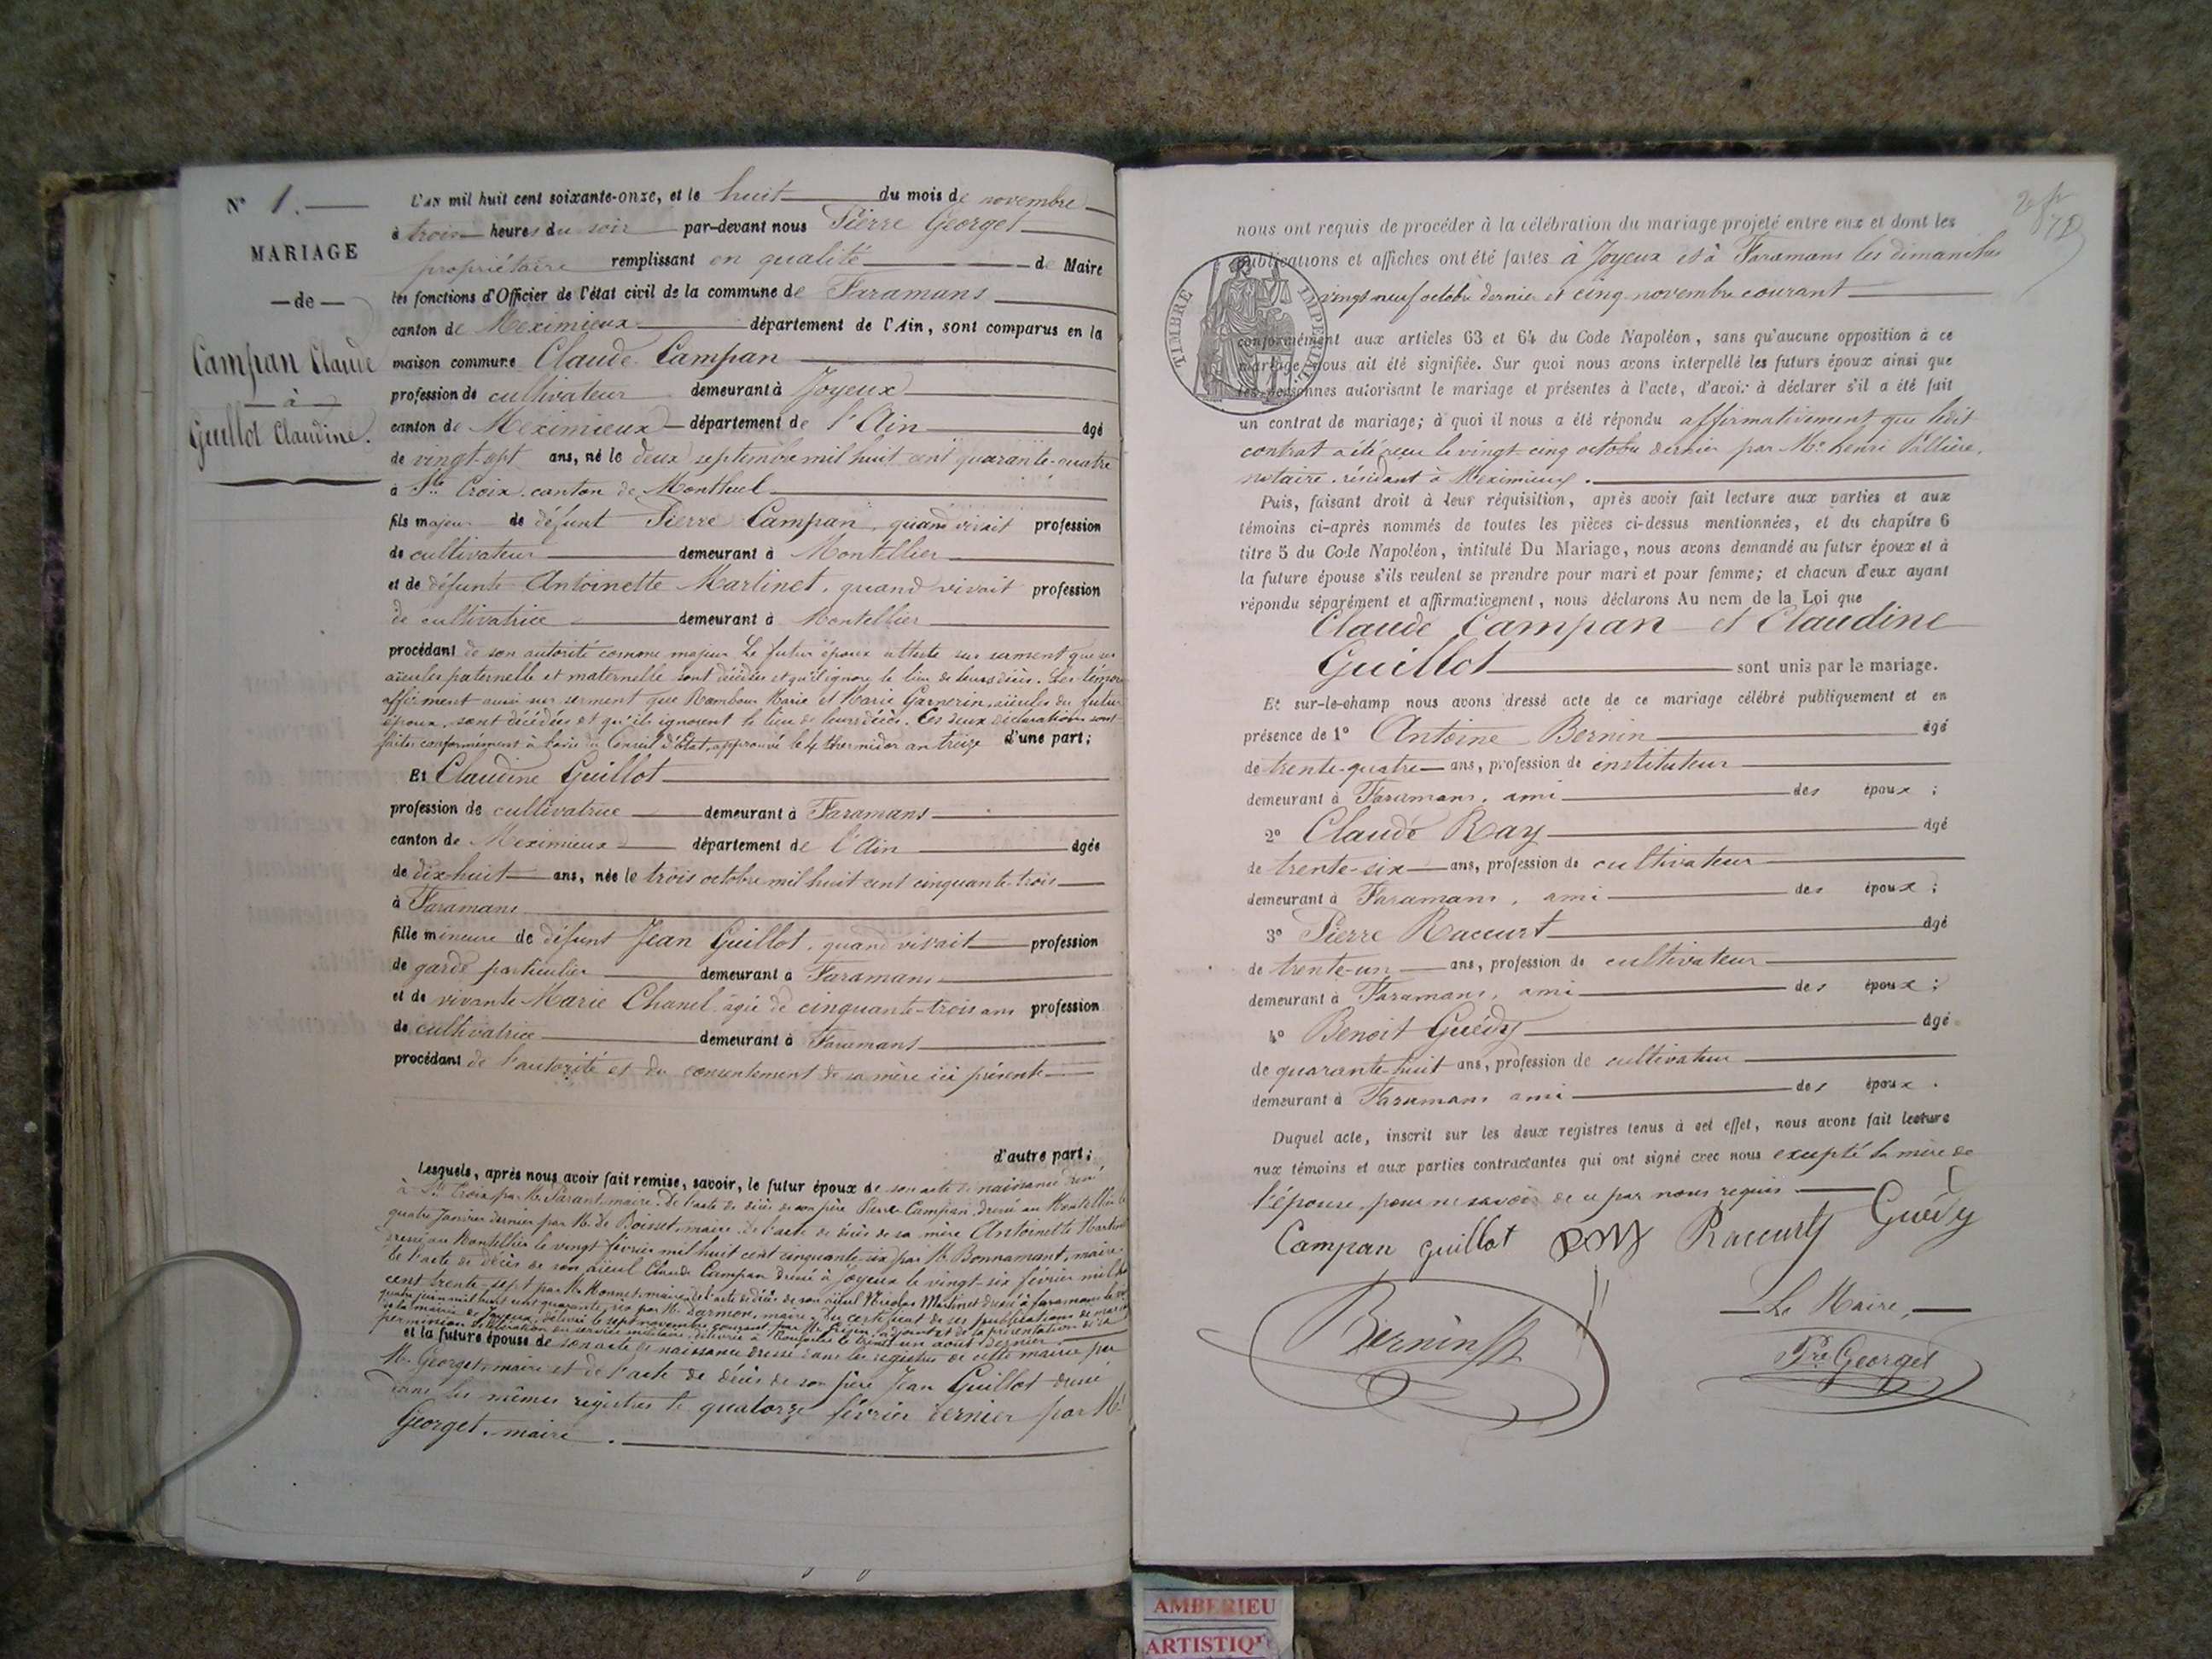 N° 1.
MARIAGE
— de —
Campan Claude
— à —
Guillot Claudine.
L'an mil huit cent soixante-onze, et le huit du mois de novembre
à trois heures du soir par-devant nous Pierre Georget
propriétaire remplissant en qualité de Maire
les fonctions d'Officier de l'état civil de la commune de Faramans
canton de Meximieux département de l'Ain, sont comparus en la
maison commune Claude Campan
profession de cultivateur demeurant à Joyeux
canton de Meximieux département de l'Ain âgé
de vingt-sept ans, né le deux septembre mil huit cent quarante-quatre
à Ste Croix, canton de Montluel
fils majeur de défunt Pierre Campan, quand vivait profession
de cultivateur demeurant à Montellier
et de défunte Antoinette Martinet, quand vivait profession
de cultivatrice demeurant à Montellier
procédant de son autorité comme majeur Le futur époux atteste sur serment que ses
aïeules paternelle et maternelle sont décédées et qu'il ignore le lieu de leurs décès. Les témoins
affirment aussi sur serment que Rambour Marie et Marie Garnerin, aïeules du futur
époux, sont décédées et qu'ils ignorent le lieu de leurs décès. Ces deux déclarations sont
faites conformément à l'avis du Conseil d'Etat, approuvé le 4 thermidor an treize d'une part;
Et Claudine Guillot
profession de cultivatrice demeurant à Faramans
canton de Meximieux département de l'Ain âgée
de dix huit ans, née le trois octobre mil huit cent cinquante-trois
à Faramans
fille mineure de défunt Jean Guillot, quand vivait profession
de garde particulier demeurant à Faramans
et de vivante Marie Chanel, âgée de cinquante-trois ans profession
de cultivatrice demeurant à Faramans
procédant de l'autorité et du consentement de sa mère ici présente
d'autre part;
Lesquels, après nous avoir fait remise, savoir, le futur époux de son acte de naissance dressé
à Ste Croix par Mr Parant, maire, de l'acte de décès de son père Pierre Campan, dressé au Montellier le
quatre Janvier dernier par Mr de Boisset, maire, de l'acte de décès de sa mère Antoinette Martinet
dressé au Montellier le vingt février mil huit cent cinquante-six par Mr Bonnamant, maire
de l'acte de décès de son aïeul Claude Campan dressé à Joyeux le vingt-six février mil huit
cent trente-sept par Mr Monnet, maire, de l'acte de décès de son aïeul Nicolas Martinet dressé à Faramans le
quatre juin mil huit cent quarante-six par Mr Darmon, maire, du certificat de ses publications de mariage
de la mairie de Joyeux, délivré le sept novembre courant par Mr adjoint et de la présentation de la
permission libération du service militaire, délivrée à le trente un août dernier
et la future épouse de son acte de naissance dressé dans les registres de cette mairie par
Mr Georget, maire et de l'acte de décès de son père Jean Guillot dressé
dans les mêmes registres le quatorze février dernier par Mr
Georget, maire.
nous ont requis de procéder à la célébration du mariage projeté entre eux et dont les
publications et affiches ont été faites à Joyeux et à Faramans les dimanches
vingt neuf octobre dernier et cinq novembre courant
TIMBRE IMPÉRIAL
conformément aux articles 63 et 64 du Code Napoléon, sans qu'aucune opposition à ce
mariage nous ait été signifiée. Sur quoi nous avons interpellé les futurs époux ainsi que
les personnes autorisant le mariage et présentes à l'acte, d'avoir à déclarer s'il a été fait
un contrat de mariage; à quoi il nous a été répondu affirmativement que ledit
contrat a été reçu le vingt-cinq octobre dernier par Me Henri Pallière,
notaire, résidant à Meximieux.
Puis, faisant droit à leur réquisition, après avoir fait lecture aux parties et aux
témoins ci-après nommés de toutes les pièces ci-dessus mentionnées, et du chapitre 6
titre 5 du Code Napoléon, intitulé Du Mariage, nous avons demandé au futur époux et à
la future épouse s'ils veulent se prendre pour mari et pour femme; et chacun d'eux ayant
répondu séparément et affirmativement, nous déclarons Au nom de la Loi que
Claude Campan et Claudine
Guillot sont unis par le mariage.
Et sur-le-champ nous avons dressé acte de ce mariage célébré publiquement et en
présence de 1° Antoine Bernin âgé
de trente-quatre ans, profession de instituteur
demeurant à Faramans, ami des époux;
2° Claude Ray âgé
de trente-six ans, profession de cultivateur
demeurant à Faramans, ami des époux;
3° Pierre Raccurt âgé
de trente-un ans, profession de cultivateur
demeurant à Faramans, ami des époux;
4° Benoit Guédy âgé
de quarante-huit ans, profession de cultivateur
demeurant à Faramans ami des époux.
Duquel acte, inscrit sur les deux registres tenus à cet effet, nous avons fait lecture
aux témoins et aux parties contractantes qui ont signé avec nous excepté la mère de
l'épouse, pour ne savoir de ce par nous requis.
Campan Guillot Ray Raccurt Guédy
Bernin
Le Maire,
Pre Georget
AMBERIEU
ARTISTIQU